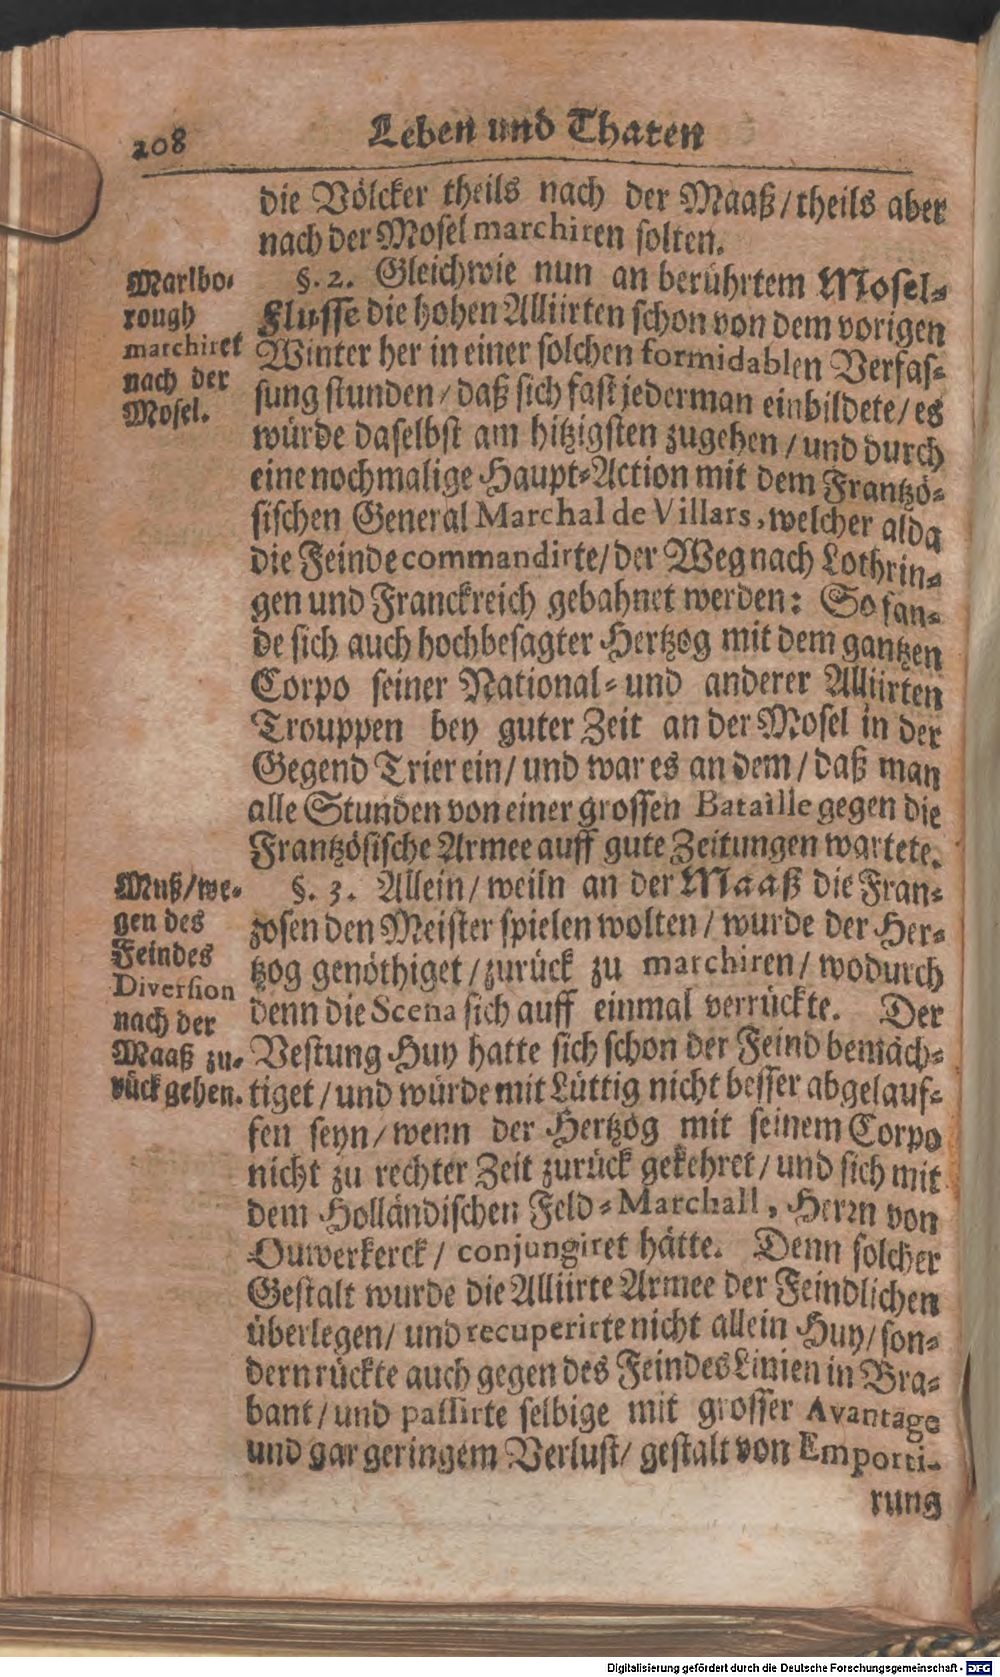 208
Leben und Thaten
die Völcker theils nach der Maaß/theils aber
nach der Mosel marchiren solten.
Marlbo-
rough
marchiret
nach der
Mosel.
§. 2. Gleichwie nun an berührtem Mosel-
Flusse die hohen Alliirten schon von dem vorigen
Winter her in einer solchen formidablen Verfas-
sung stunden/ daß sich fast jederman einbildete/ es
würde daselbst am hitzigsten zugehen/ und durch
eine nochmalige Haupt-Action mit dem Frantzö-
sischen General Marchal de Villars, welcher alda
die Feinde commandirte/ der Weg nach Lothrin-
gen und Franckreich gebahnet werden: So fan-
de sich auch hochbesagter Hertzog mit dem gantzen
Corpo seiner National- und anderer Alliirten
Trouppen bey guter Zeit an der Mosel in der
Gegend Trier ein/ und war es an dem/ daß man
alle Stunden von einer grossen Bataille gegen die
Frantzösische Armee auff gute Zeitungen wartete.
Muß/we-
gen des
Feindes
Diversion
nach der
Maaß zu-
rück gehen.
§. 3. Allein/ weiln an der Maaß die Fran-
zosen den Meister spielen wolten/ wurde der Her-
tzog genöthiget/ zurück zu marchiren/ wodurch
denn die Scena sich auff einmal verrückte. Der
Vestung Huy hatte sich schon der Feind bemäch-
tiget/ und würde mit Lüttig nicht besser abgelauf-
fen seyn/ wenn der Hertzog mit seinem Corpo
nicht zu rechter Zeit zurück gekehret/ und sich mit
dem Holländischen Feld-Marchall, Herrn von
Ouwerkerck/ conjungiret hätte. Denn solcher
Gestalt wurde die Alliirte Armee der Feindlichen
überlegen/ und recuperirte nicht allein Huy/ son-
dern rückte auch gegen des Feindes Linien in Bra-
bant/ und passirte selbige mit grosser Avantage
und gar geringem Verlust/ gestalt von Emporti-
rung
Digitalisierung gefördert durch die Deutsche Forschungsgemeinschaft - DFG